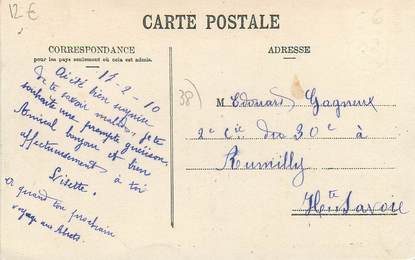 12 €
CARTE POSTALE
CORRESPONDANCE
pour les pays seulement où cela est admis.
ADRESSE
17-2-10
Ai été bien surprise
de te savoir malade, je te
souhaite une prompte guérison,
Amical bonjour et bien
affectueusement à toi
Lisette.
à quand ton prochain
voyage aux Abrets.
38)
M Edouard Gagneux
2e Cie du 30e à
Rumilly
Hte Savoie